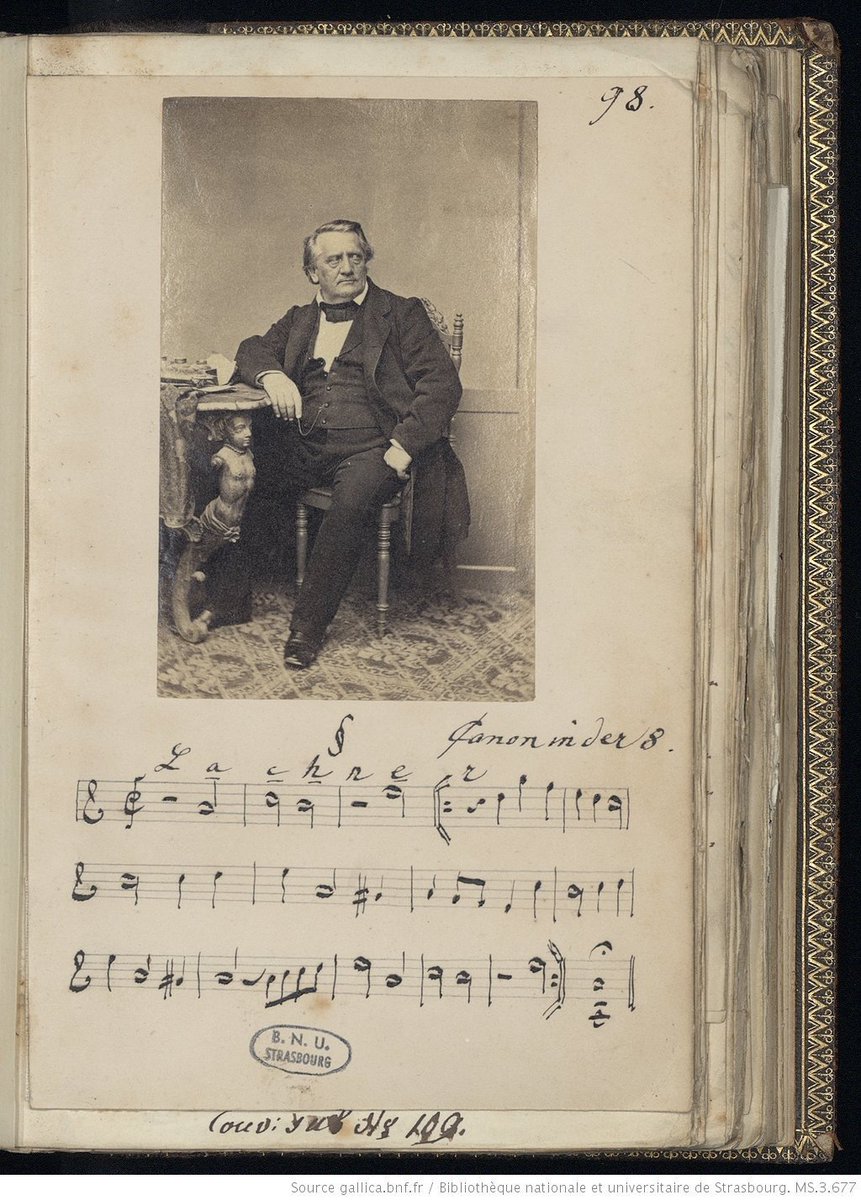 98.
§ Canon in der 8.
L a c h n e r
B. N. U.
STRASBOURG
Source gallica.bnf.fr / Bibliothèque nationale et universitaire de Strasbourg. MS.3.677